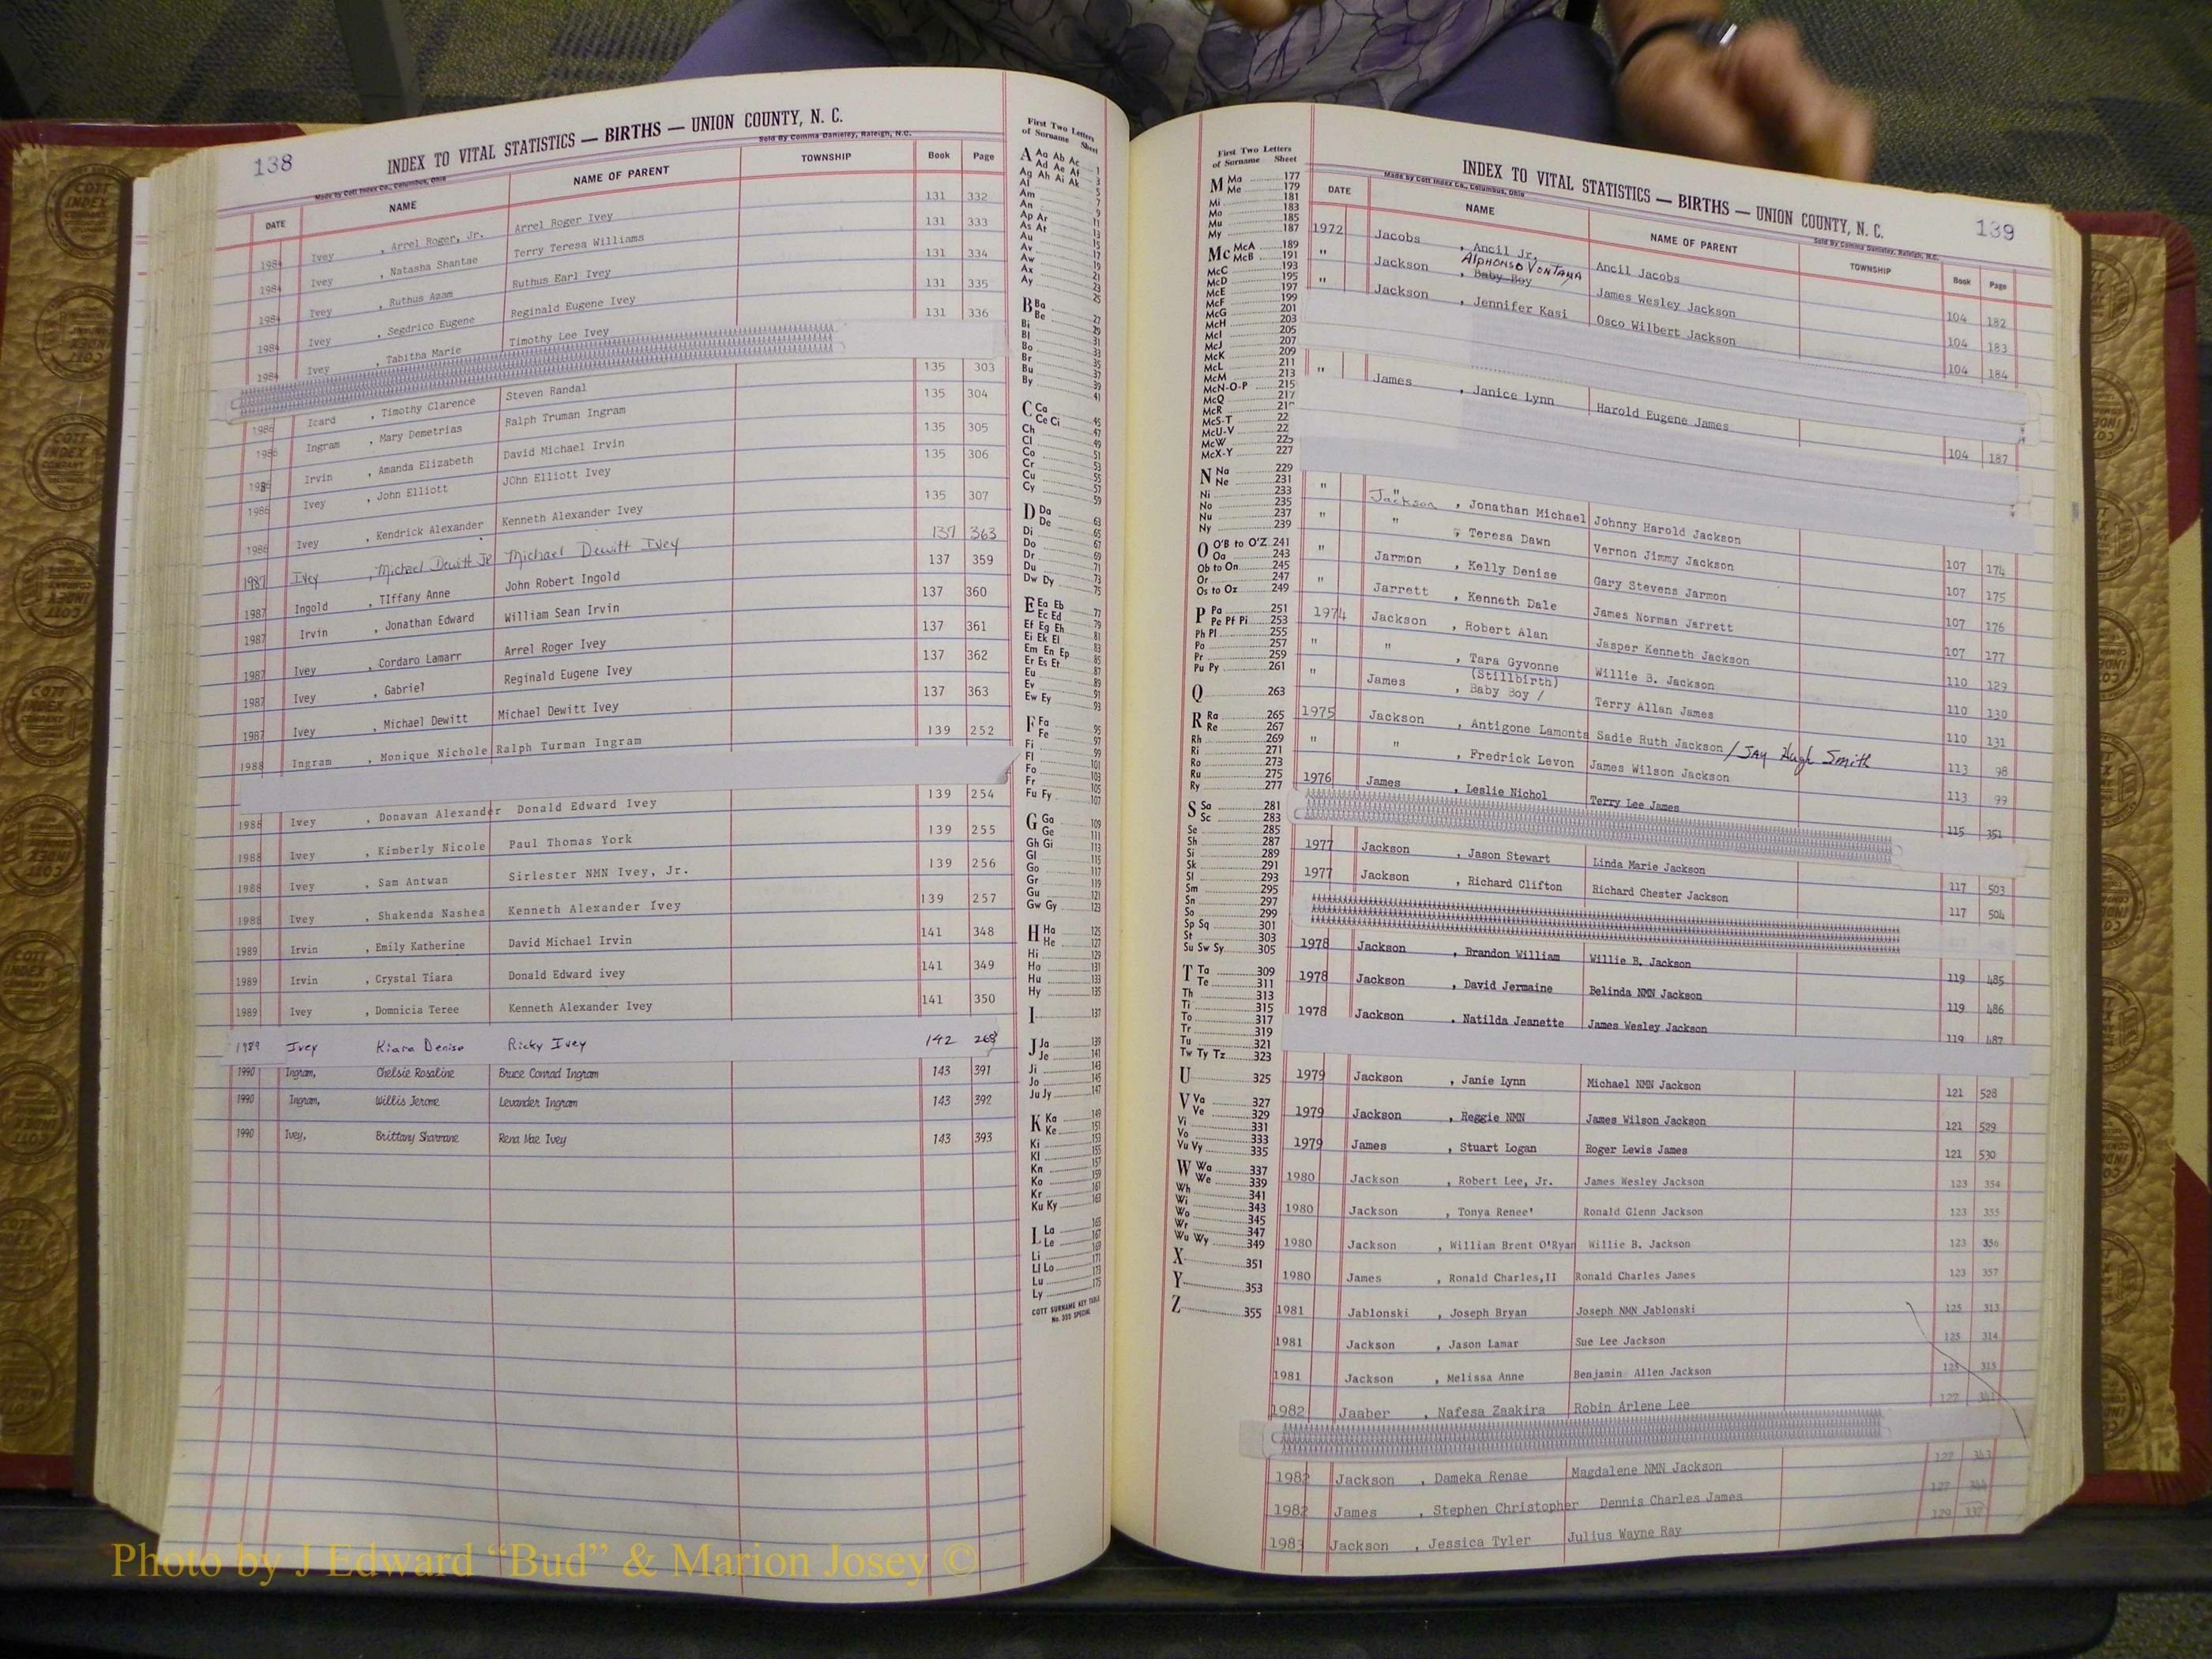 138
INDEX TO VITAL STATISTICS — BIRTHS — UNION COUNTY, N. C.
Made by Cott Index Co., Columbus, Ohio
Sold By Comma Danieley, Raleigh, N.C.
DATE NAME NAME OF PARENT TOWNSHIP Book Page
1984 Ivey , Arrel Roger, Jr. Arrel Roger Ivey 131 332
1984 Ivey , Natasha Shantae Terry Teresa Williams 131 333
1984 Ivey , Ruthus Azam Ruthus Earl Ivey 131 334
1984 Ivey , Segdrico Eugene Reginald Eugene Ivey 131 335
1984 Ivey , Tabitha Marie Timothy Lee Ivey 131 336
1986 Icard , Timothy Clarence Steven Randal 135 303
1986 Ingram , Mary Demetrias Ralph Truman Ingram 135 304
1986 Irvin , Amanda Elizabeth David Michael Irvin 135 305
1986 Ivey , John Elliott JOhn Elliott Ivey 135 306
1986 Ivey , Kendrick Alexander Kenneth Alexander Ivey 135 307
1987 Ivey , Michael Dewitt Jr Michael Dewitt Ivey 137 363
1987 Ingold , TIffany Anne John Robert Ingold 137 359
1987 Irvin , Jonathan Edward William Sean Irvin 137 360
1987 Ivey , Cordaro Lamarr Arrel Roger Ivey 137 361
1987 Ivey , Gabriel Reginald Eugene Ivey 137 362
1987 Ivey , Michael Dewitt Michael Dewitt Ivey 137 363
1988 Ingram , Monique Nichole Ralph Turman Ingram 139 252
1988 Ivey , Donavan Alexander Donald Edward Ivey 139 254
1988 Ivey , Kimberly Nicole Paul Thomas York 139 255
1988 Ivey , Sam Antwan Sirlester NMN Ivey, Jr. 139 256
1988 Ivey , Shakenda Nashea Kenneth Alexander Ivey 139 257
1989 Irvin , Emily Katherine David Michael Irvin 141 348
1989 Irvin , Crystal Tiara Donald Edward ivey 141 349
1989 Ivey , Domnicia Teree Kenneth Alexander Ivey 141 350
1989 Ivey Kiara Denise Ricky Ivey 142 268
1990 Ingram, Chelsie Rosaline Bruce Conrad Ingram 143 391
1990 Ingram, Willis Jerome Levander Ingram 143 392
1990 Ivey, Brittany Sharmane Rena Mae Ivey 143 393
First Two Letters
of Surname Sheet
A Aa Ab Ac 1
Ad Ae Af 3
Ag Ah Ai Ak 5
Al 7
Am 9
An 11
Ap Ar 13
As At 15
Au 17
Av 19
Aw 21
Ax 23
Ay 25
B Ba 27
Be 29
Bi 31
Bl 33
Bo 35
Br 37
Bu 39
By 41
C Ca 45
Ce Ci 47
Ch 49
Cl 51
Co 53
Cr 55
Cu 57
Cy 59
D Da 63
De 65
Di 67
Do 69
Dr 71
Du 73
Dw Dy 75
E Ea Eb 77
Ec Ed 79
Ef Eg Eh 81
Ei Ek El 83
Em En Ep 85
Er Es Et 87
Eu 89
Ev 91
Ew Ey 93
F Fa 95
Fe 97
Fi 99
Fl 101
Fo 103
Fr 105
Fu Fy 107
G Ga 109
Ge 111
Gh Gi 113
Gl 115
Go 117
Gr 119
Gu 121
Gw Gy 123
H Ha 125
He 127
Hi 129
Ho 131
Hu 133
Hy 135
I 137
J Ja 139
Je 141
Ji 143
Jo 145
Ju Jy 147
K Ka 149
Ke 151
Ki 153
Kl 155
Kn 157
Ko 159
Kr 161
Ku Ky 163
L La 165
Le 167
Li 169
Ll Lo 171
Lu 173
Ly 175
COTT SURNAME KEY TABLE
No. 355 SPECIAL
First Two Letters
of Surname Sheet
M Ma 177
Me 179
Mi 181
Mo 183
Mu 185
My 187
Mc McA 189
McB 191
McC 193
McD 195
McE 197
McF 199
McG 201
McH 203
McI 205
McJ 207
McK 209
McL 211
McM 213
McN-O-P 215
McQ 217
McR
McS-T
McU-V
McW 225
McX-Y 227
N Na 229
Ne 231
Ni 233
No 235
Nu 237
Ny 239
O O'B to O'Z 241
Oa 243
Ob to On 245
Or 247
Os to Oz 249
P Pa 251
Pe Pf Pi 253
Ph Pl 255
Po 257
Pr 259
Pu Py 261
Q 263
R Ra 265
Re 267
Rh 269
Ri 271
Ro 273
Ru 275
Ry 277
S Sa 281
Sc 283
Se 285
Sh 287
Si 289
Sk 291
Sl 293
Sm 295
Sn 297
So 299
Sp Sq 301
St 303
Su Sw Sy 305
T Ta 309
Te 311
Th 313
Ti 315
To 317
Tr 319
Tu 321
Tw Ty Tz 323
U 325
V Va 327
Ve 329
Vi 331
Vo 333
Vu Vy 335
W Wa 337
We 339
Wh 341
Wi 343
Wo 345
Wr 347
Wu Wy 349
X 351
Y 353
Z 355
INDEX TO VITAL STATISTICS — BIRTHS — UNION COUNTY, N. C.
139
Made by Cott Index Co., Columbus, Ohio
Sold By Comma Danieley, Raleigh, N.C.
DATE NAME NAME OF PARENT TOWNSHIP Book Page
1972 Jacobs , Ancil Jr, Ancil Jacobs 104 182
ALPHONSO VONTANA
" Jackson , Baby Boy James Wesley Jackson 104 183
" Jackson , Jennifer Kasi Osco Wilbert Jackson 104 184
" James , Janice Lynn Harold Eugene James 104 187
" Jackson , Jonathan Michael Johnny Harold Jackson 107 174
" " , Teresa Dawn Vernon Jimmy Jackson 107 175
" Jarmon , Kelly Denise Gary Stevens Jarmon 107 176
" Jarrett , Kenneth Dale James Norman Jarrett 107 177
1974 Jackson , Robert Alan Jasper Kenneth Jackson 110 129
" " , Tara Gyvonne Willie B. Jackson 110 130
(Stillbirth)
" James , Baby Boy / Terry Allan James 110 131
1975 Jackson , Antigone Lamonta Sadie Ruth Jackson / Jay Hugh Smith 113 98
" " , Fredrick Levon James Wilson Jackson 113 99
1976 James , Leslie Nichol Terry Lee James 115 351
1977 Jackson , Jason Stewart Linda Marie Jackson 117 503
1977 Jackson , Richard Clifton Richard Chester Jackson 117 504
1978 Jackson , Brandon William Willie B. Jackson 119 485
1978 Jackson , David Jermaine Belinda NMN Jackson 119 486
1978 Jackson , Natilda Jeanette James Wesley Jackson 119 487
1979 Jackson , Janie Lynn Michael NMN Jackson 121 528
1979 Jackson , Reggie NMN James Wilson Jackson 121 529
1979 James , Stuart Logan Roger Lewis James 121 530
1980 Jackson , Robert Lee, Jr. James Wesley Jackson 123 354
1980 Jackson , Tonya Renee' Ronald Glenn Jackson 123 355
1980 Jackson , William Brent O'Ryan Willie B. Jackson 123 356
1980 James , Ronald Charles,II Ronald Charles James 123 357
1981 Jablonski , Joseph Bryan Joseph NMN Jablonski 125 313
1981 Jackson , Jason Lamar Sue Lee Jackson 125 314
1981 Jackson , Melissa Anne Benjamin Allen Jackson 125 315
1982 Jaaber , Nafesa Zaakira Robin Arlene Lee 127 341
1982 Jackson , Dameka Renae Magdalene NMN Jackson 127 343
1982 James , Stephen Christopher Dennis Charles James 127 344
1983 Jackson , Jessica Tyler Julius Wayne Ray 129 337
Photo by J Edward “Bud” & Marion Josey ©